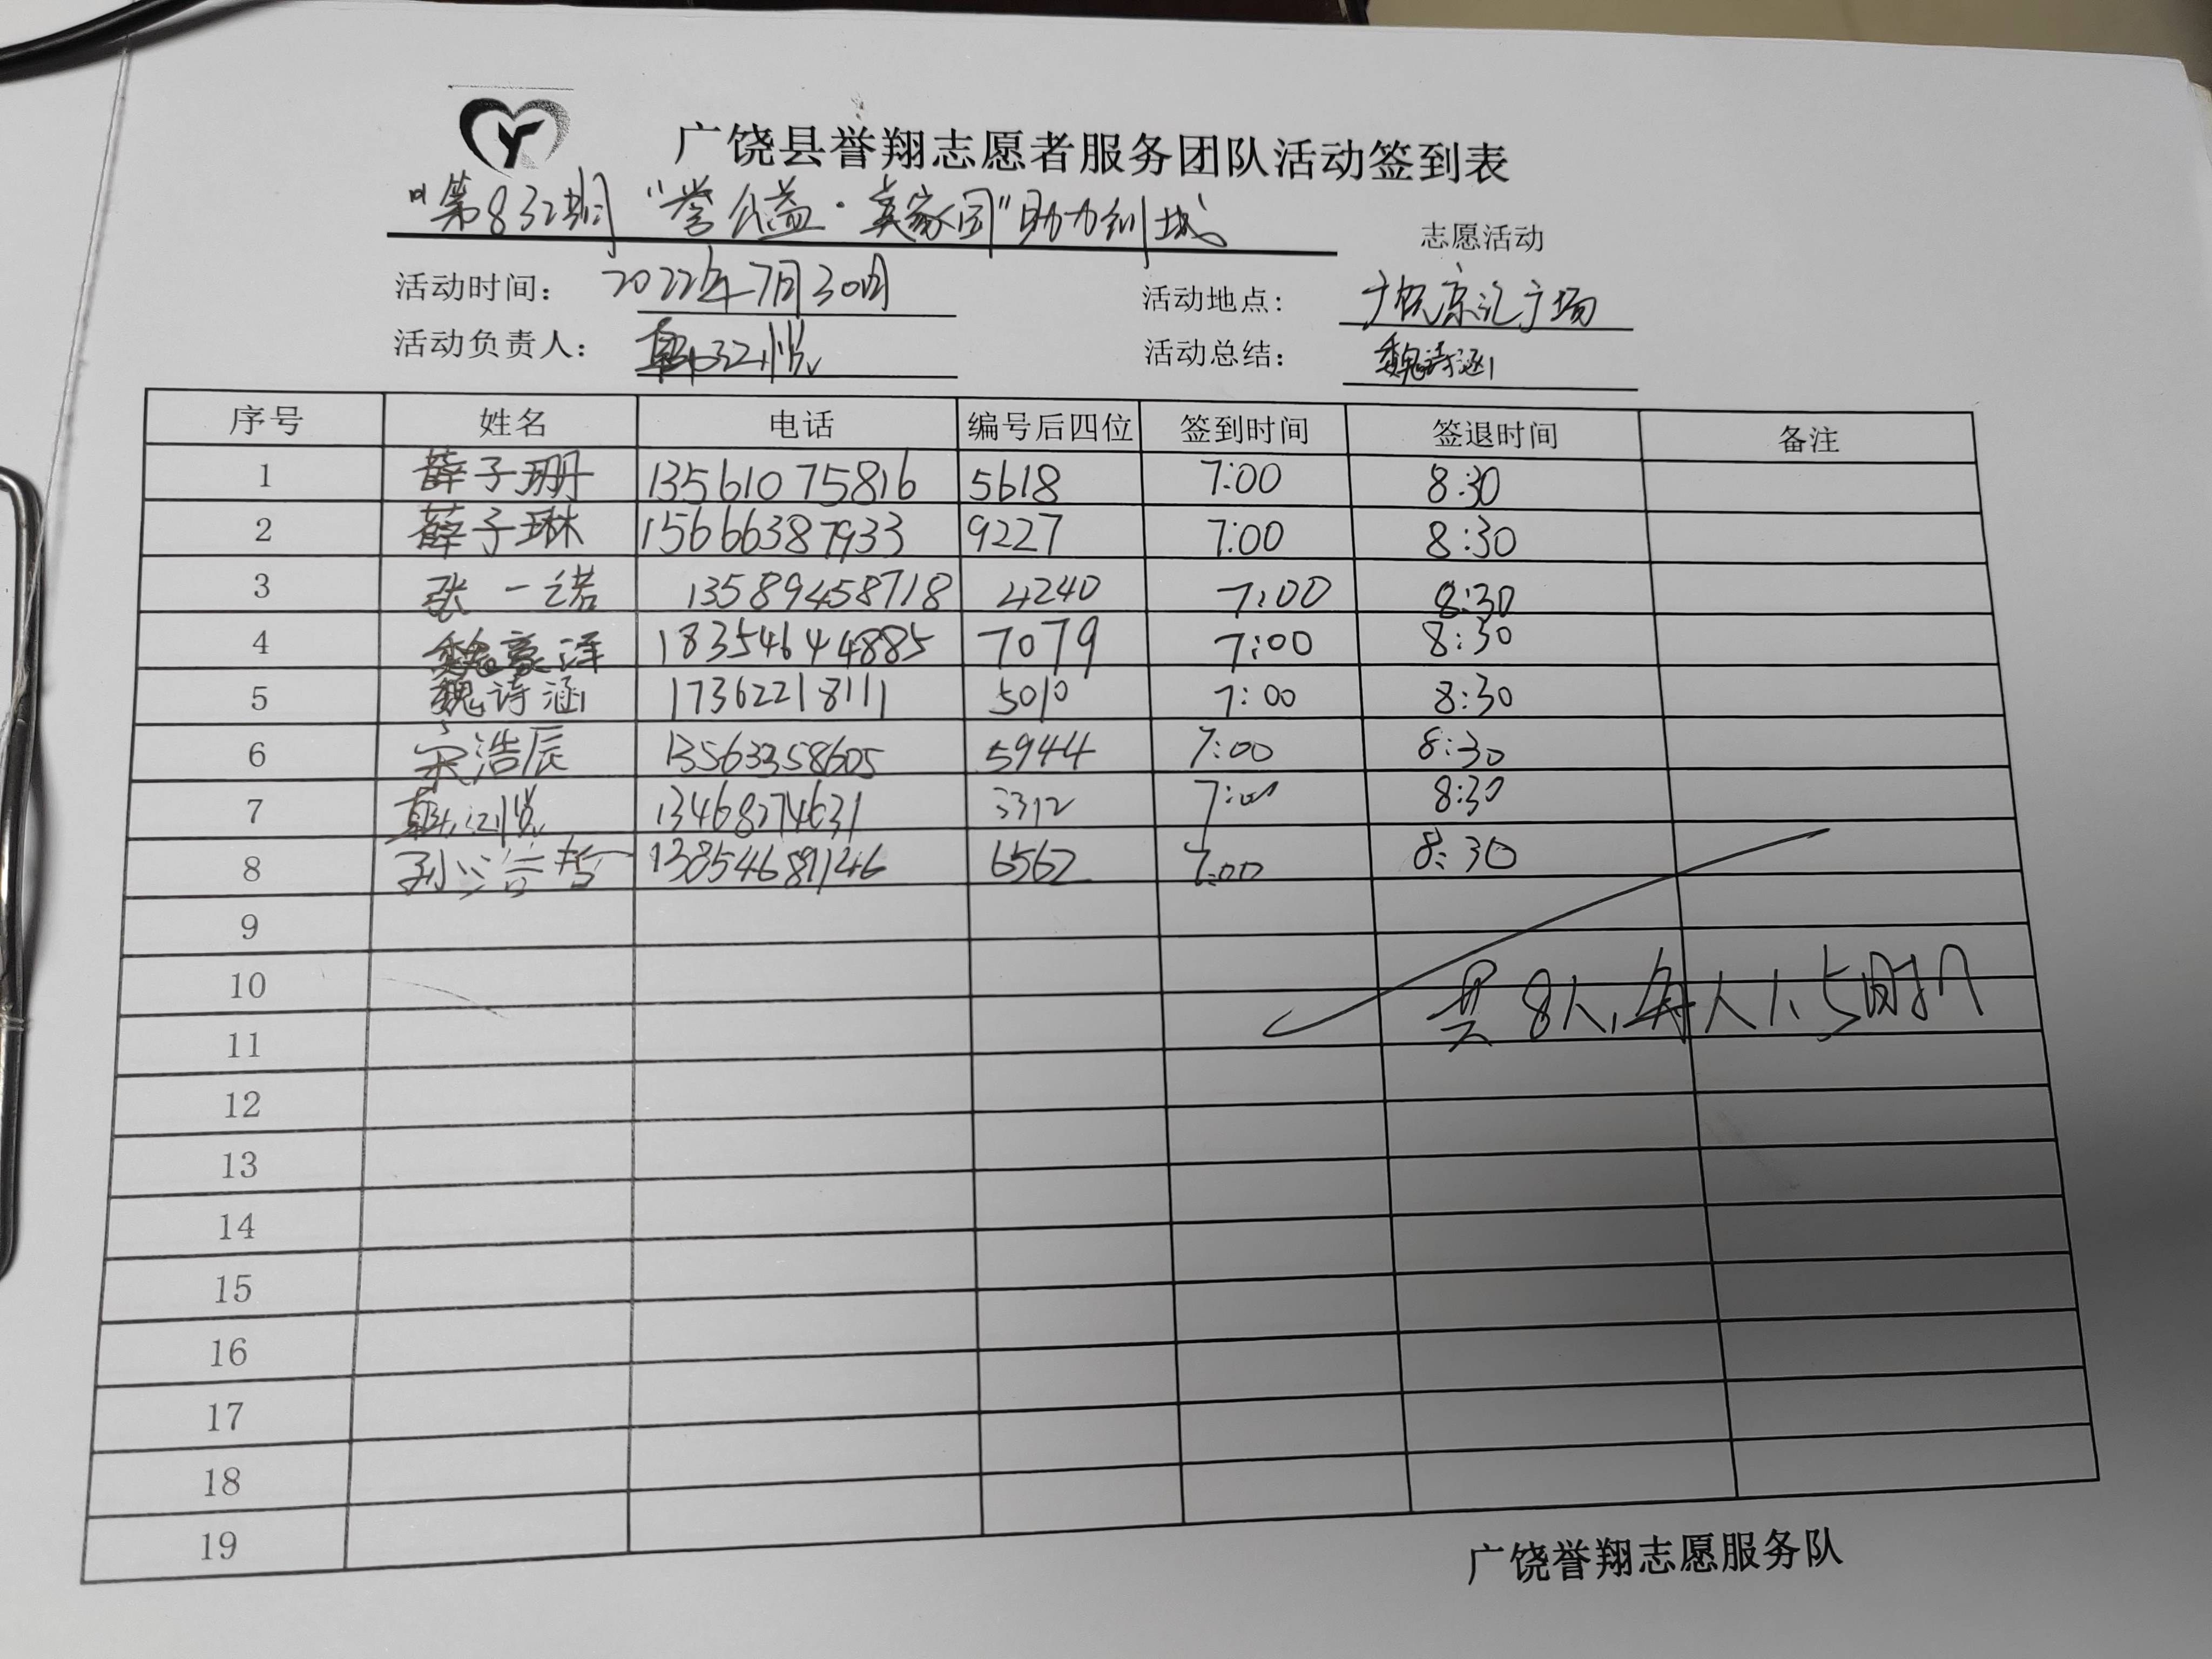 广饶县誉翔志愿者服务团队活动签到表
"第832期"誉公益·美家园"助力创城 志愿活动
活动时间： 2022年7月30日 活动地点： 广饶京汇广场
活动负责人： 活动总结： 魏诗涵
序号 姓名 电话 编号后四位 签到时间 签退时间 备注
1 薛子珊 13561075816 5618 7:00 8:30
2 薛子琳 15666387933 9227 7:00 8:30
3 张一诺 13589458718 4240 7:00 8:30
4 魏豪泽 18354644885 7079 7:00 8:30
5 魏诗涵 17362218111 5010 7:00 8:30
6 宋浩辰 13563358605 5944 7:00 8:30
7 13468274631 3312 7:00 8:30
8 孙浩哲 13854689146 6562 7:00 8:30
9
10
共8人,每人1.5小时
11
12
13
14
15
16
17
18
19
广饶誉翔志愿服务队